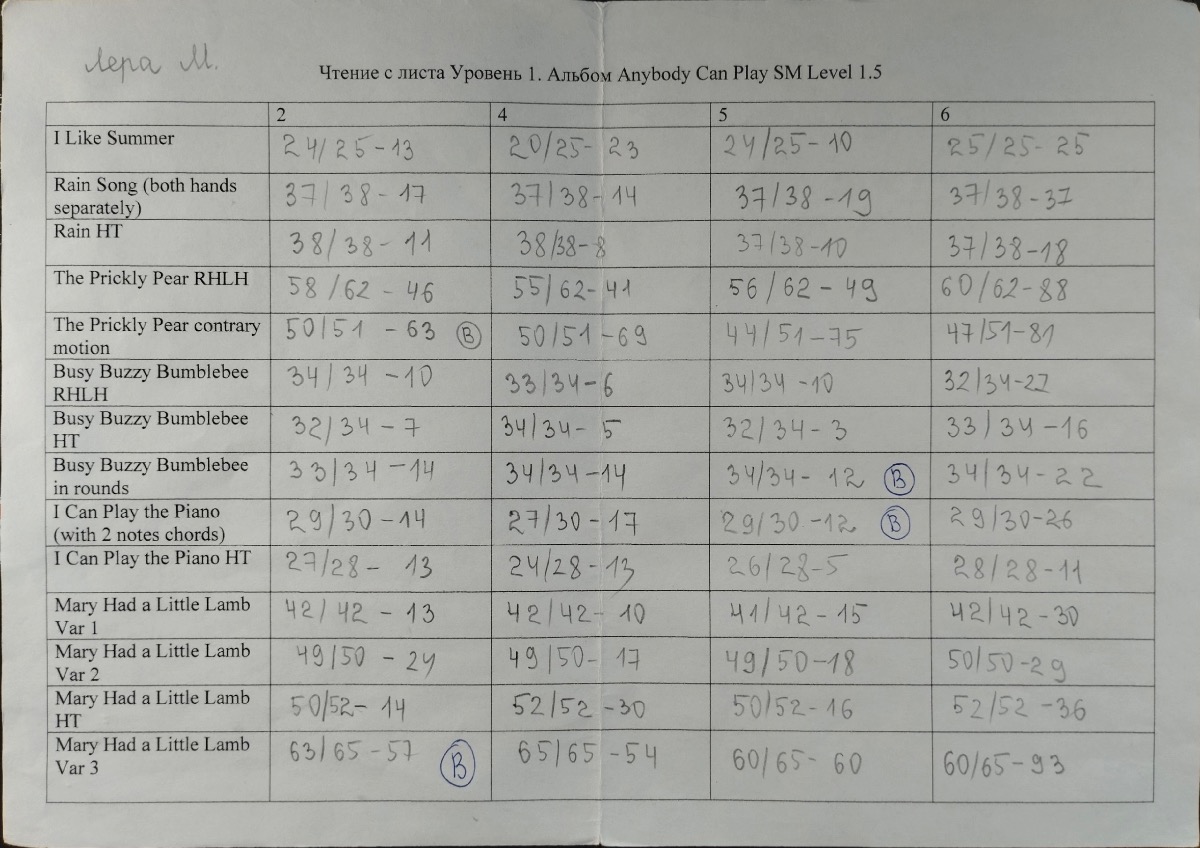 Лера М.
Чтение с листа Уровень 1. Альбом Anybody Can Play SM Level 1.5
2 4 5 6
I Like Summer 24/25-13 20/25-23 24/25-10 25/25-25
Rain Song (both hands
separately) 37/38-17 37/38-14 37/38-19 37/38-37
Rain HT 38/38-11 38/38-8 37/38-10 37/38-18
The Prickly Pear RHLH 58/62-46 55/62-41 56/62-49 60/62-88
The Prickly Pear contrary
motion 50/51-63 В 50/51-69 44/51-75 47/51-81
Busy Buzzy Bumblebee
RHLH 34/34-10 33/34-6 34/34-10 32/34-27
Busy Buzzy Bumblebee
HT 32/34-7 34/34-5 32/34-3 33/34-16
Busy Buzzy Bumblebee
in rounds 33/34-14 34/34-14 34/34-12 В 34/34-22
I Can Play the Piano
(with 2 notes chords) 29/30-14 27/30-17 29/30-12 В 29/30-26
I Can Play the Piano HT 27/28-13 24/28-13 26/28-5 28/28-11
Mary Had a Little Lamb
Var 1 42/42-13 42/42-10 41/42-15 42/42-30
Mary Had a Little Lamb
Var 2 49/50-24 49/50-17 49/50-18 50/50-29
Mary Had a Little Lamb
HT 50/52-14 52/52-30 50/52-16 52/52-36
Mary Had a Little Lamb
Var 3 63/65-57 В 65/65-54 60/65-60 60/65-93